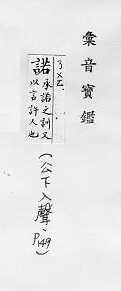 彙音寶鑑
ㄋㄨㄛˋ
諾 承諾之剖又
以言許人也
(公下入聲、P149)